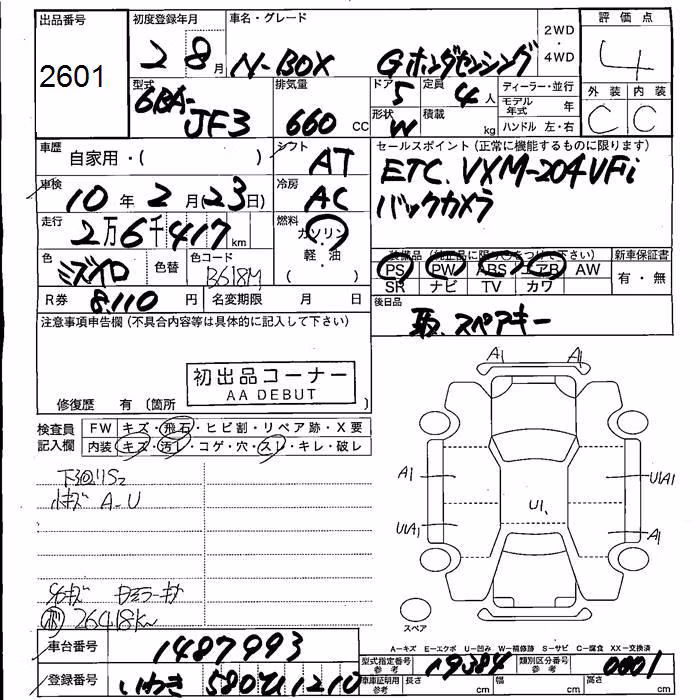 出品番号 初度登録年月 車名・グレード 2WD・4WD 評価点
2601 2 8月 N-BOX Gホンダセンシング 4
型式 排気量 ドア 定員 ディーラー・並行 外装 内装
6BA-JF3 660 CC 5 4人 モデル年式 年 C C
形状 W 積載 kg ハンドル 左・右
車歴 自家用・( ) シフト AT
セールスポイント (正常に機能するものに限ります)
車検 10年2月(23日) 冷房 AC
ETC. VXM-204VFi
バックカメラ
走行 2万6千417km 燃料 ガソリン・軽油
色 ミズイロ 色替 色コード B618M
装備品 (純正品に限り○をつけて下さい) 新車保証書
PS PW ABS エアB AW 有・無
SR ナビ TV カワ
R券 8,110円 名変期限 月 日
後日品
取、スペアキー
注意事項申告欄 (不具合内容等は具体的に記入して下さい)
初出品コーナー
AA DEBUT
修復歴 有 (箇所 )
検査員記入欄 FW キズ・飛石・ヒビ割・リペア跡・X要
内装 キズ・汚レ・コゲ・穴・スレ・キレ・破レ
A1 A1
下廻りS2
小キズ A-U
A1 U1A1
U1
U1A1 A1
26418km
スペア
A-キズ E-エクボ U-凹み W-補修跡 S-サビ C-腐食 XX-交換済
車台番号 1487993
型式指定番号 参考 19384 類別区分番号 参考 0001
登録番号 いわき 580 1210
車庫証明用 参考 長さ cm 幅 cm 高さ cm